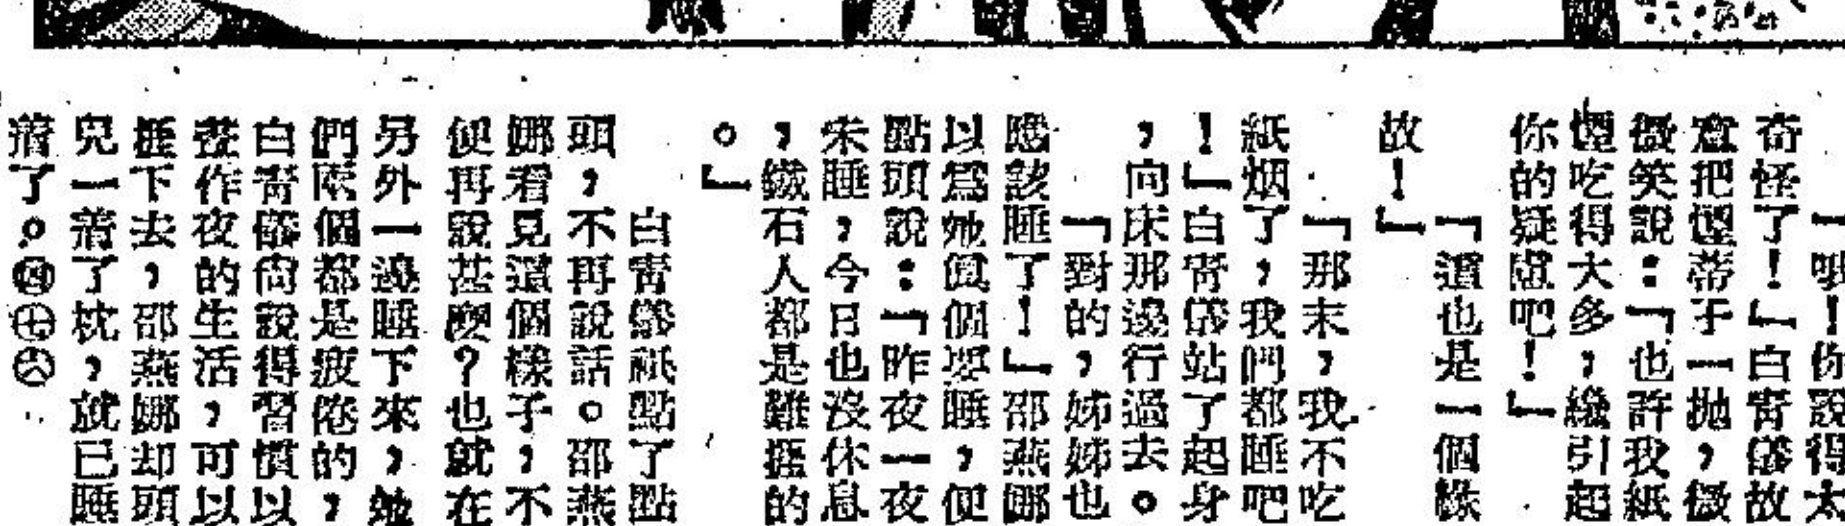 「唄！你說得太
奇怪了！」白膏儀故
意把煙蒂子一抛，微
微笑說：「也許我紙
煙吃得大多，纔引起
你的疑慮吧！」
「這也是一個緣
故！」
「那末，我不吃
紙烟了，我們都睡吧
！」白膏儀站了起身
，向床那邊行過去。
「對的，姊姊也
應該睡了！」邵燕娜
以為她眞個要睡，便
點頭說：「昨夜一夜
未睡，今日也沒休息
，鐵石人都是難捱的
。」
白膏儀祇點了點
頭，不再說話。邵燕
娜看見這個樣子，不
便再說甚麼？也就在
另外一邊睡下來，她
們兩個都是疲倦的，
白膏儀尙說得習慣以
晝作夜的生活，可以
捱下去，邵燕娜却頭
兒一着了枕，就已睡
着了。㊃㊆㊅